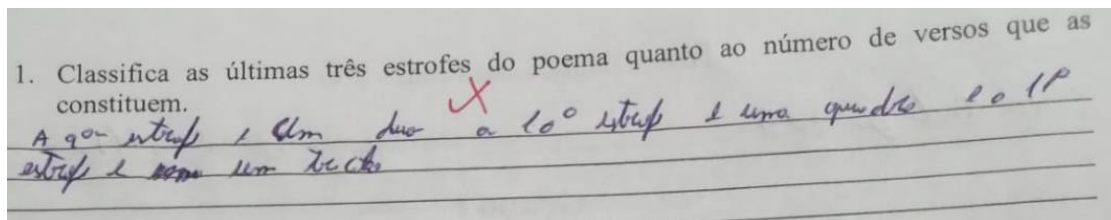 1. Classifica as últimas três estrofes do poema quanto ao número de versos que as
constituem.
A 9ª estrofe é Um duo a 10º estrofe é uma quadra e o 11º
estrofe é um terceto